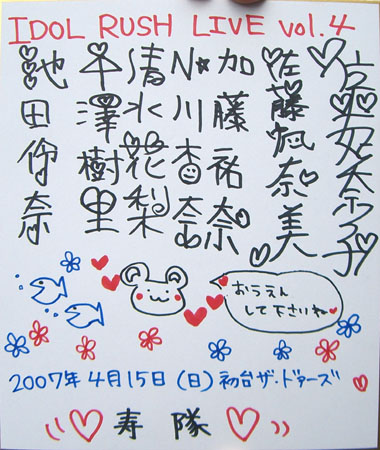 IDOL RUSH LIVE vol.4
佐藤帆奈美
加藤祐奈
川杏奈
清水花梨
平澤樹里
池田伊奈
おうえん
して下さいね
2007年4月15日(日)初台ザ・ドアーズ
寿隊